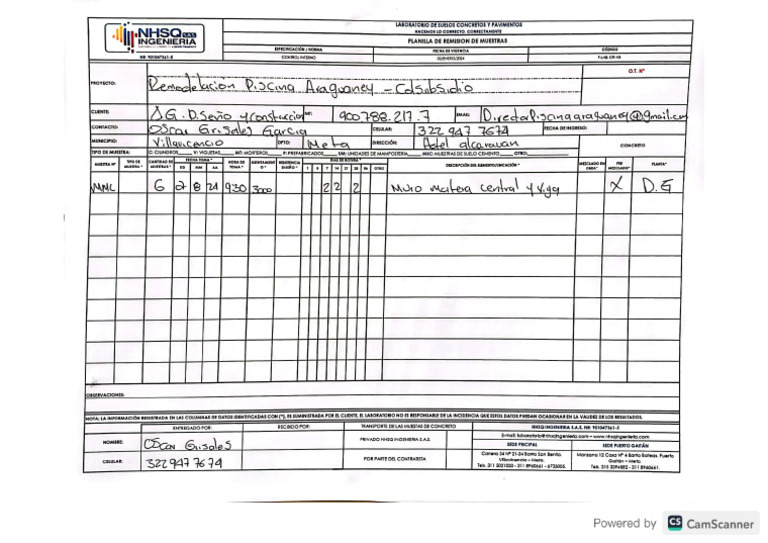 NHSQ SAS
INGENIERIA
NIT: 901047561-5
LABORATORIO DE SUELOS CONCRETOS Y PAVIMENTOS
HACEMOS LO CORRECTO, CORRECTAMENTE
PLANILLA DE REMISION DE MUESTRAS
ESPECIFICACIÓN / NORMA FECHA DE VIGENCIA CÓDIGO
CONTROL INTERNO
PROYECTO: Remodelacion Piscina Araguaney - Colsubsidio O.T. N°
CLIENTE: AG. Diseño y construccion NIT: 900788.217.7 EMAIL: DirectorPiscinaaraguaney@gmail.com
CONTACTO: Oscar Grisales Garcia CELULAR: 322 947 7674 FECHA DE INGRESO:
MUNICIPIO: Villavicencio DPTO: Meta DIRECCIÓN: alcaravan CONCRETO
TIPO DE MUESTRA: C: CILINDROS V: VIGUETAS MT: MORTEROS P: PREFABRICADOS UM: UNIDADES DE MAMPOSTERIA MSC: MUESTRAS DE SUELO CEMENTO OTRO:
MUESTRA N° TIPO DE MUESTRA * CANTIDAD DE MUESTRAS * FECHA TOMA * DD MM AA HORA DE TOMA * ASENTAMIENTO * RESISTENCIA DISEÑO * DIAS DE ROTURA * 7 14 28 OTRO DESCRIPCIÓN DEL ELEMENTO/UBICACIÓN * MEZCLADO EN OBRA* PRE MEZCLADO* PLANTA*
MMC 6 8 24 930 3000 2 2 2 Muro Matera Central y Viga X D.G
OBSERVACIONES:
NOTA: LA INFORMACIÓN REGISTRADA EN LAS COLUMNAS DE DATOS IDENTIFICADAS CON (*), ES SUMINISTRADA POR EL CLIENTE, EL LABORATORIO NO ES RESPONSABLE DE LA INCIDENCIA QUE ESTOS DATOS PUEDAN OCASIONAR EN LA VALIDEZ DE LOS RESULTADOS.
ENTREGADO POR: RECIBIDO POR: TRANSPORTE DE LAS MUESTAS DE CONCRETO NHSQ INGENIERIA S.A.S. NIT: 901047561-5
E-mail: laboratorio@nhsqingenieria.com - www.nhsqingenieria.com
NOMBRE: Oscar Grisales PRIVADO NHSQ INGENIERIA S.A.S SEDE PRICIPAL SEDE PUERTO GAITÁN
CELULAR: 322 947 7674 POR PARTE DEL CONTRATISTA
Carrera 34 N° 21-24 Barrio San Benito. Manzana 12 Casa N° 4 Barrio Bateas. Puerto
Villavicencio – Meta. Gaitán – Meta.
Powered by CS CamScanner